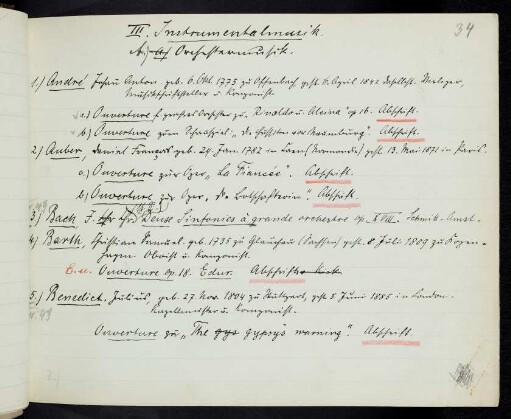 34
III. Instrumentalmusik.
b.) a) Orchestermusik.
1.) André, Johann Anton geb. 6. Okt. 1775 zu Offenbach, gest. 6. April 1842 daselbst. Verleger,
Musikschriftsteller u. Komponist.
a.) Ouverture f. grosses Orchester zu "Rinaldo u. Alcina" op 16. Abschrift.
b.) Ouverture zum Schauspiel "die Hussiten vor Naumburg". Abschrift.
2.) Auber, Daniel François, geb. 29. Jan. 1782 in Caen (Normandie) gest. 13. Mai 1871 in Paris.
a.) Ouverture zur Oper "La Fiancée". Abschrift.
b) Ouverture zur Oper, "die Botschafterin". Abschrift.
3.) Bach, J. Chr. Deux Sinfonies à grande orchestre op. XVIII. Schmitt-Amst.
4.) Barth, Christian Samuel, geb. 1735 zu Glauchau (Sachsen) gest. 8. Juli 1809 zu Kopen-
hagen. Oboist u. Komponist.
Ouverture op. 18. Edur. Abschrift
5.) Benedict, Julius, geb. 27. Nov. 1804 zu Stuttgart, gest. 5 Juni 1885 in London.
Kapellmeister u. Komponist.
Ouverture zu "The gyp gypsy's warning". Abschrift.